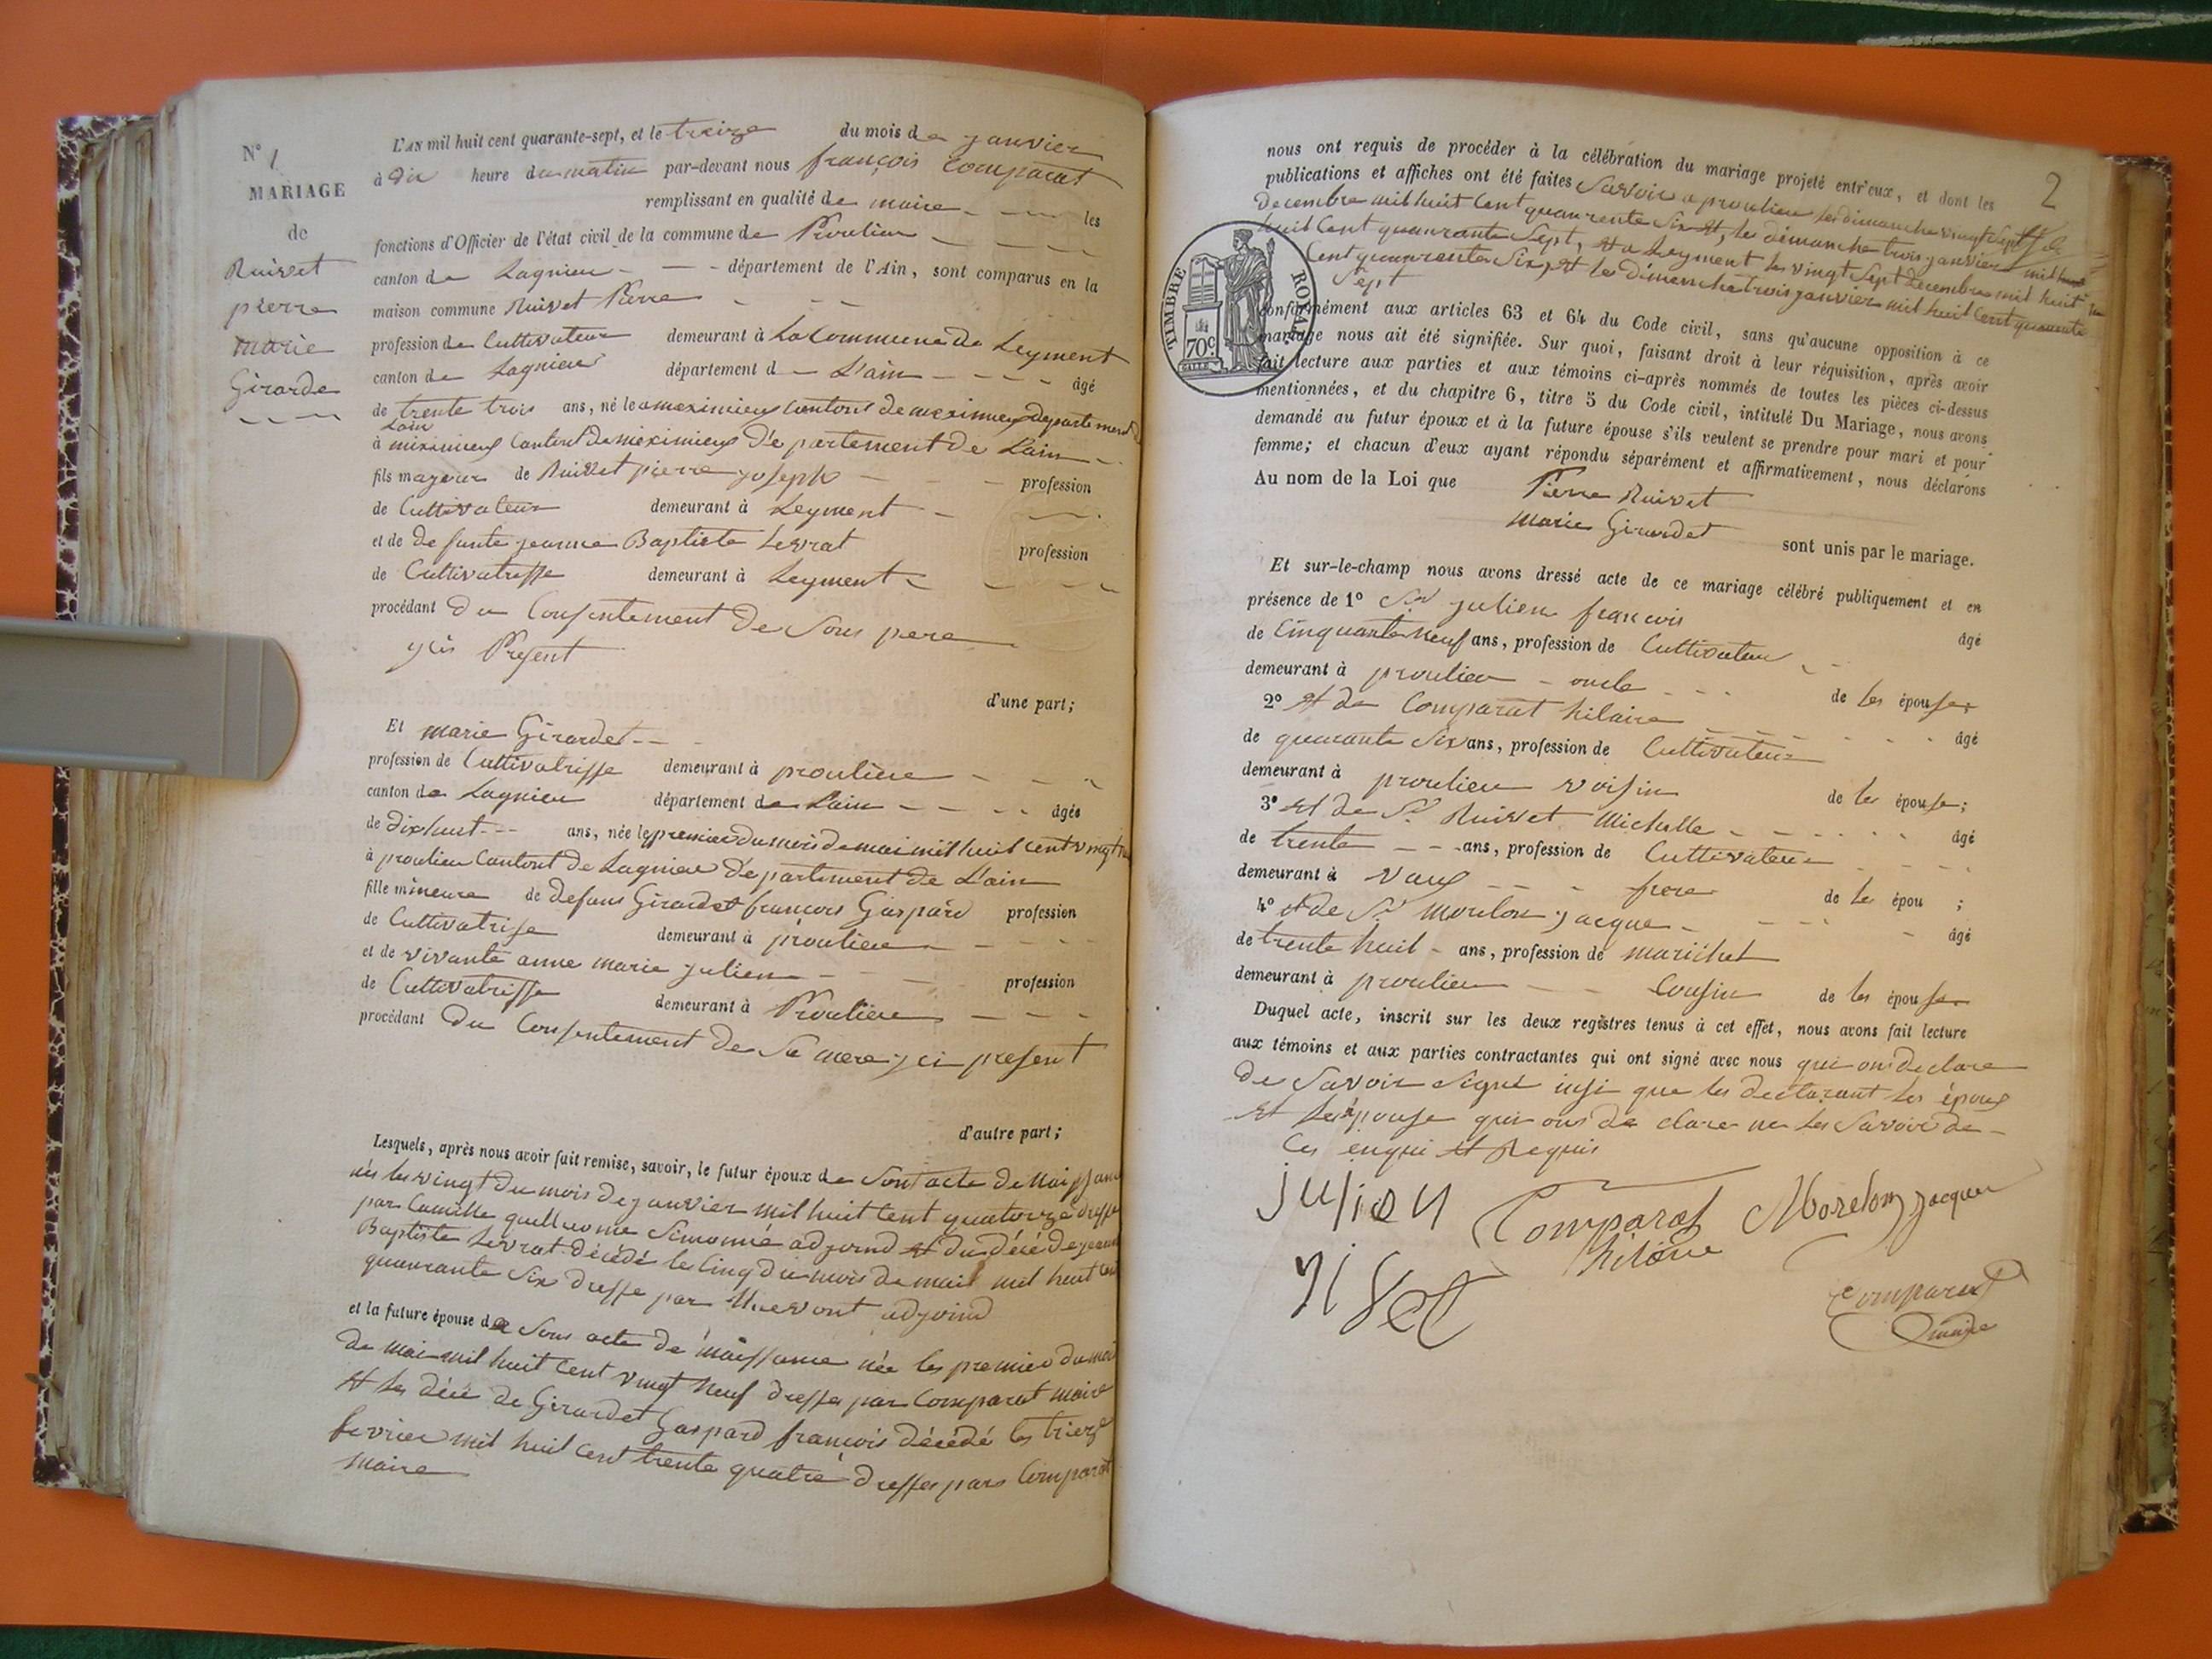 N° 1
MARIAGE
de
Ruivet
pierre
marie
Girarde
L'AN mil huit cent quarante-sept, et le treize du mois de janvier
à dix heure du matin par-devant nous françois Comparat
remplissant en qualité de maire les
fonctions d'Officier de l'état civil de la commune de Proulieu
canton de Lagnieu département de l'Ain, sont comparus en la
maison commune Ruivet Pierre
profession de Cultivateur demeurant à La Commune de Leyment
canton de Lagnieu département d L'ain âgé
de trente trois ans, né le a meximieux Contont de meximieux departement de
Lain
à meximieux Contont de meximieux departement de Lain
fils mageur de Ruivet pierre joseph profession
de Cultivateur demeurant à Leyment
et de defunte jeanne Baptiste Levrat profession
de Cultivatrisse demeurant à Leyment
procédant du Consentement de Sons pere
ycis Present
d'une part;
Et marie Girardet
profession de Cultivatrisse demeurant à proulieu
canton de Lagnieu département de Lain âgée
de dix huit ans, née le premier du mois de mai mil huit cent vingt
à proulieu Contont de Lagnieu departement de L'ain
fille mineure de defuns Girardet francois Gaspard profession
de Cultivatrise demeurant à proulieu
et de vivante anne marie julien profession
de Cultivatrisse demeurant à Proulieu
procédant du Consentement de Sa mere yci present
d'autre part;
Lesquels, après nous avoir fait remise, savoir, le futur époux de Sont acte de Naissance
nés les vingt du mois de janvier mil huit Cent quatorze dresse
par Camille adjoind et du décé de jeanne
Baptiste Levrat décédé les Cinq du mois de mail mil huit cent
quaurante Six dresse par adjoind
et la future épouse de Sons acte de naissance née les premier du moi
de mai mil huit Cent vingt Neuf dresse par Comparat maire
Et les décé de Girardet Gaspard francois décédé les trieze
fevrier mil huit Cent trente quatre dresse pars Comparat
maire
2
nous ont requis de procéder à la célébration du mariage projeté entr'eux, et dont les
publications et affiches ont été faites Savoir a proulieu les dimanche vingt Sept
decembre mil huit Cent quaurente Six et, les dimanche trois janvier mil
huit Cent quaurante Sept, et a Leyment les vingt Sept decembre mil huit
Cent quaurente Six, et les dimanche trois janvier mil huit Cent quaurante
Sept
TIMBRE ROYAL
70c
conformément aux articles 63 et 64 du Code civil, sans qu'aucune opposition à ce
mariage nous ait été signifiée. Sur quoi, faisant droit à leur réquisition, après avoir
fait lecture aux parties et aux témoins ci-après nommés de toutes les pièces ci-dessus
mentionnées, et du chapitre 6, titre 5 du Code civil, intitulé Du Mariage, nous avons
demandé au futur époux et à la future épouse s'ils veulent se prendre pour mari et pour
femme; et chacun d'eux ayant répondu séparément et affirmativement, nous déclarons
Au nom de la Loi que Pierre Ruivet
marie Girardet
sont unis par le mariage.
Et sur-le-champ nous avons dressé acte de ce mariage célébré publiquement et en
présence de 1° Sr julien francois âgé
de Cinquante Neuf ans, profession de Cultivateur
demeurant à proulieu oncle de les épouse;
2° et de Comparat hilaire âgé
de quarante Six ans, profession de Cultivateur
demeurant à proulieu voisin de les épouse;
3° et de Sr Ruivet Michelle âgé
de trente ans, profession de Cultivateur
demeurant à Vaux frere de les épou ;
4° et de Sr Morelon jacque âgé
de trente huit ans, profession de marichal
demeurant à proulieu Cousin de les épouse
Duquel acte, inscrit sur les deux registres tenus à cet effet, nous avons fait lecture
aux témoins et aux parties contractantes qui ont signé avec nous qui on declare
de Savoir Signé insi que les declarant les époux
et les épouse qui ons de clare ne les Savoir de
Ces enqui et Requis
julien Comparat hilaire Morelon jacque
Comparat
maire